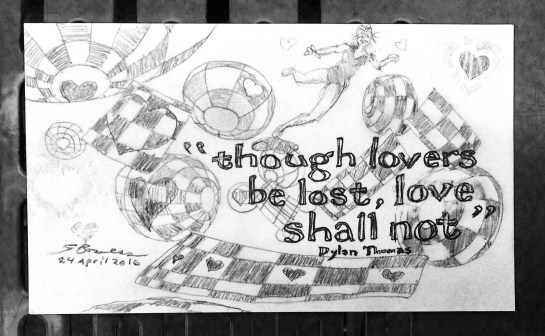 "though lovers
be lost, love
shall not"
Dylan Thomas
24 April 2016